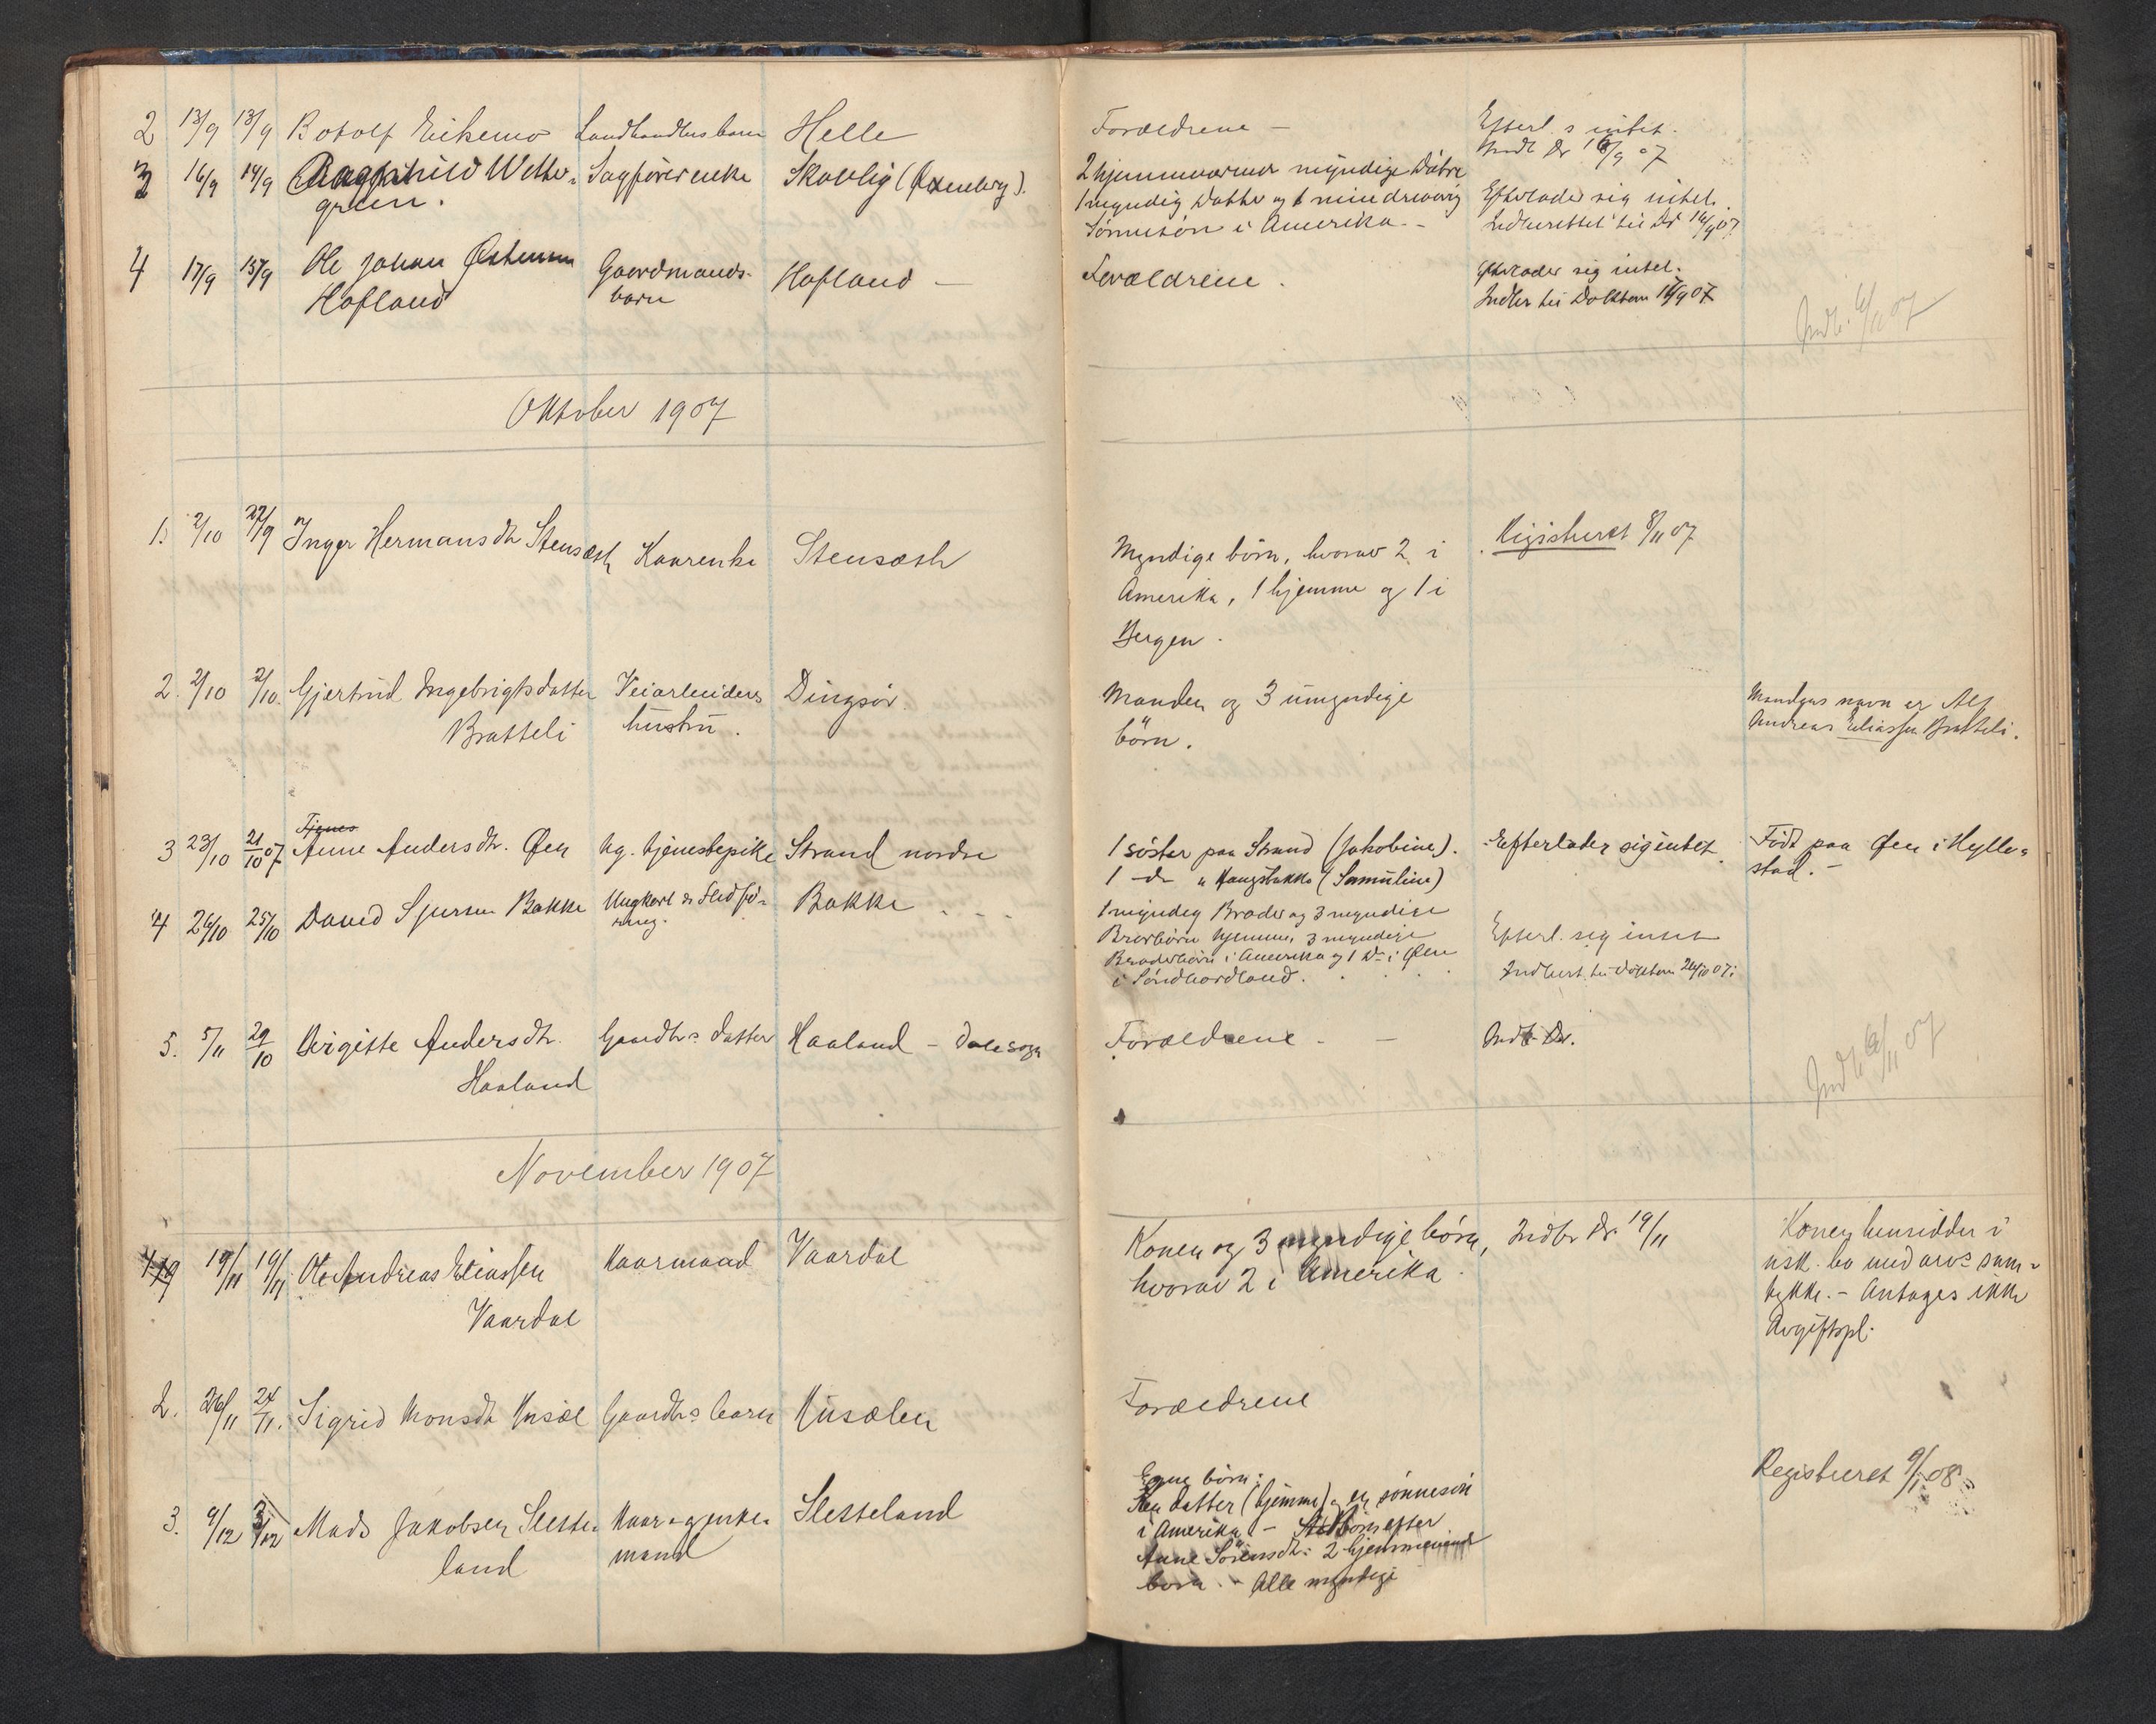 2 13/9 13/9 Botolf Eikemo Landhandlersbarn Helle Forældrene – Efterl. s intet.
Indb Dr 16/9 07
3 16/9 14/9 Ragnhild Wetter- Sagførerenke Skovlig (Øxenberg). 2 hjemmeværende myndige Døtre
green. 1 myndig Datter og 1 mindreaarig Efterlader sig intet.
Sønnesøn i Amerika. – Indberettet til Dr 16/9 07
4 17/9 15/9 Ole Johan Østensen Gaardmands- Hofland – Forældrene. Efterlader sig intet.
Hofland barn Indber til Doktoren 17/9 07
Indb. 6/11 07
Oktober 1907
1. 2/10 27/9 Inger Hermansdtr Stensæth Kaarenke Stensæth Myndige børn, hvorav 2 i Registreret 8/11 07
Amerika, 1 hjemme og 1 i
Bergen.
2. 2/10 2/10. Gjertrud Ingebrigtsdatter Veiarbeiders Dingsør. Manden og 3 umyndige Mandens navn er Alf
Bratteli hustru. børn. Andreas Eliassen Bratteli.
Tjenes
3 23/10 21/10 07 Anne Andersdtr. Øen Ug. tjenestepike Strand nordre 1 søster paa Strand (Jakobine). Efterlader sig intet. Født paa Øen i Hylle-
1 –do– " Haugsbakke (Samuline) stad. –
4 26/10 25/10 David Sjursen Bakke Ungkarl & Flødfø- Bakke 1 myndig Broder og 3 myndige
ring. Brorbørn hjemme, 3 myndige Efterl. sig intet
Broderbørn i Amerika og 1 Do i Ølen
i Søndhordland. Indbert. til doktoren 26/10 07.
5. 5/11 29/10 Birgitte Andersdtr. Gaardbrs datter Haaland – Dale sogn Forældrene – – Indb Dr.
Haaland
Indb. 6/11 07
November 1907
1 19/11 19/11 Ole Andreas Eliassen Kaarmand Vaardal Konen og 3 myndige børn, Indbr Dr. 19/11 Konen hensidder i
Vaardal hvorav 2 i Amerika. usk. bo med arvs sam-
tykke. – Antages ikke
Avgiftspl.
2. 26/11 24/11. Sigrid Monsdtr Husøe Gaardbrs barn Husøen Forældrene
3. 9/12 3/12 Mads Jakobsen Slette- Kaar- og enke- Sletteland Egne børn: Registreret 9/1 08
land mand En datter (hjemme) og en sønnesøn
i Amerika. – Stedbørn efter
Anne Sørensdtr: 2 hjemmeværende
børn. – Alle myndige